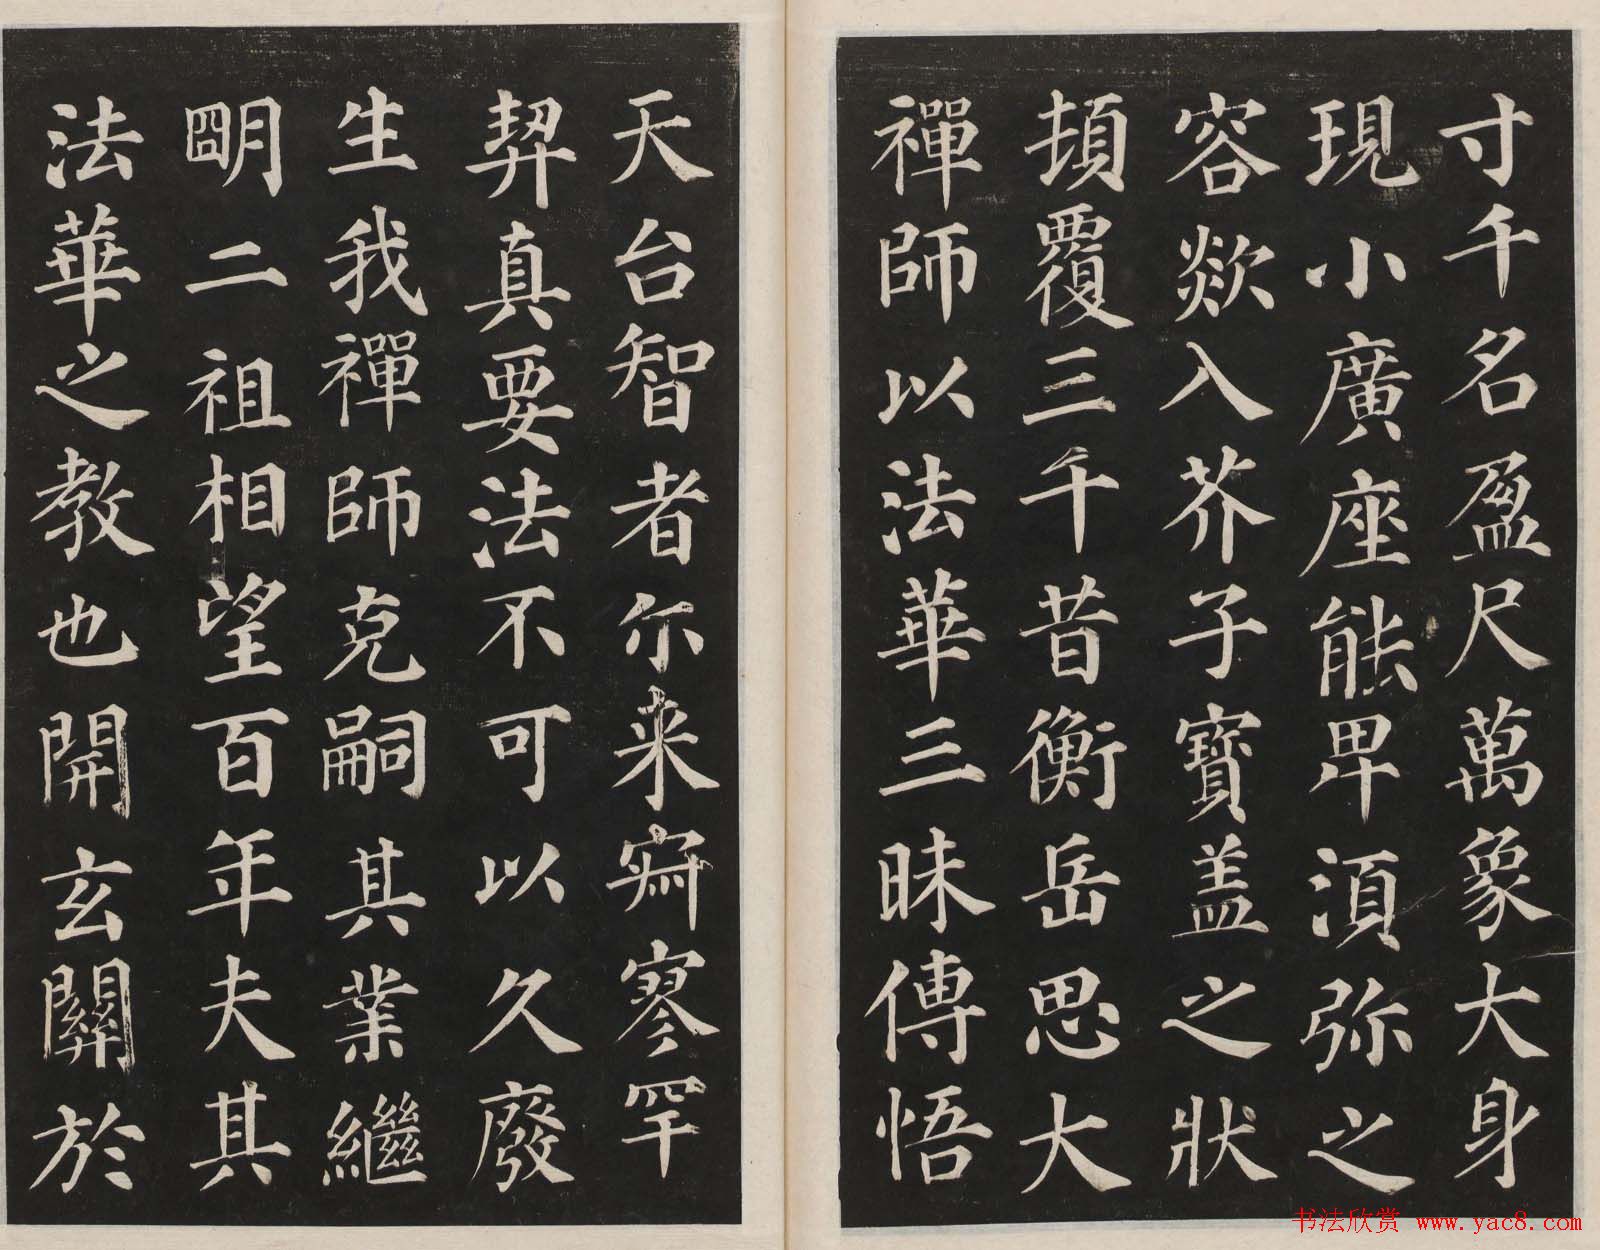 寸千名盈尺萬象大身
現小廣座能卑湏弥之
容欻入芥子寶盖之狀
頓覆三千昔衡岳思大
禪師以法華三昧傳悟
天台智者尒来寂寥罕
契真要法不可以久廢
生我禪師克嗣其業繼
明二祖相望百年夫其
法華之教也開玄關於
书法欣赏 www.yac8.com